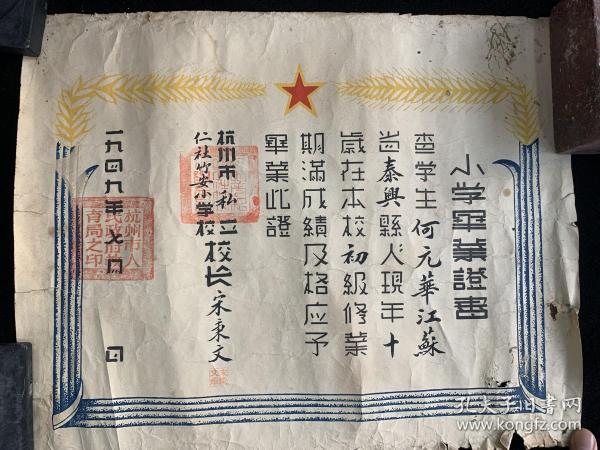 小学畢業證書
查学生何元華江蘇
省泰興縣人現年十
歲在本校初級修業
期滿成績及格应予
畢業此證
杭州市私立
仁社竹安小学校校长宋秉文
一九四九年七月 日
杭州市人
民政府教
育局之印
孔夫子旧書网
www.kongfz.com